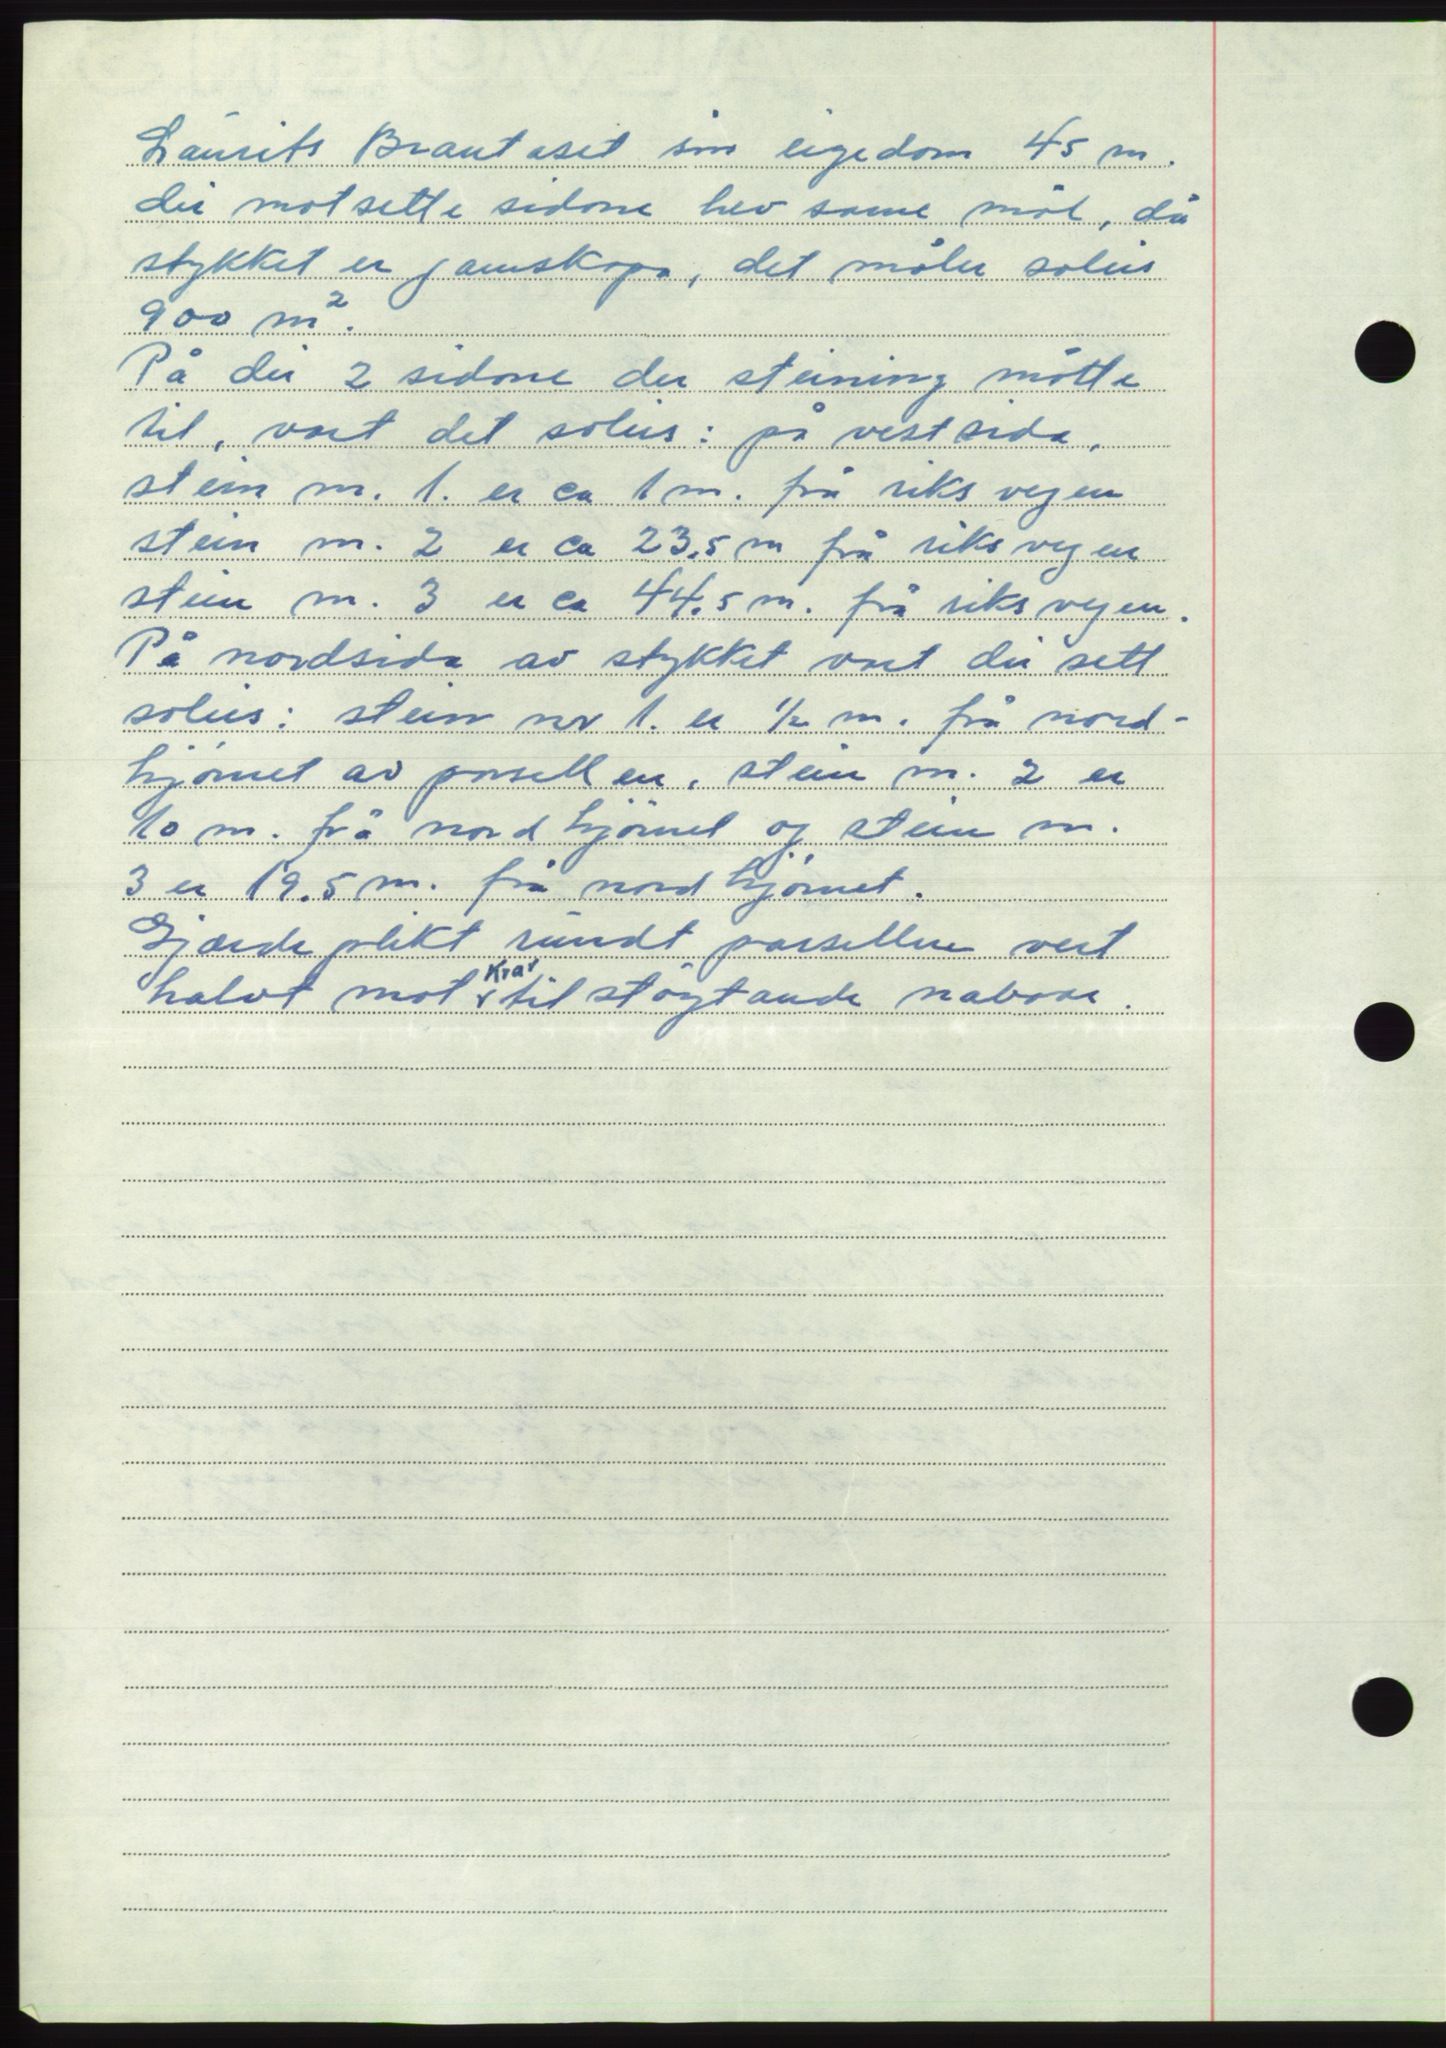 Laurits Brautaset sin eigedom 45 m.
dei motsette sidone hev same mål, då
stykket er jamskapa, det måler soleis
900 m².
På dei 2 sidone der steining måtte
til, vart det soleis: på vestsida,
stein nr. 1. er ca 1 m. frå riksvegen
stein nr. 2 er ca 23.5 m frå riksvegen
stein nr. 3 er ca 44.5 m. frå riksvegen.
På nordsida av stykket vart dei sett
soleis: stein nr 1. er ½ m. frå nord-
hjørnet av parsellen, stein nr. 2 er
10 m. frå nordhjørnet og stein nr.
3 er 19.5 m. frå nordhjørnet.
Gjærdeplikt rundt parsellen vert
halvt mot kvar tilstøytande nabore.